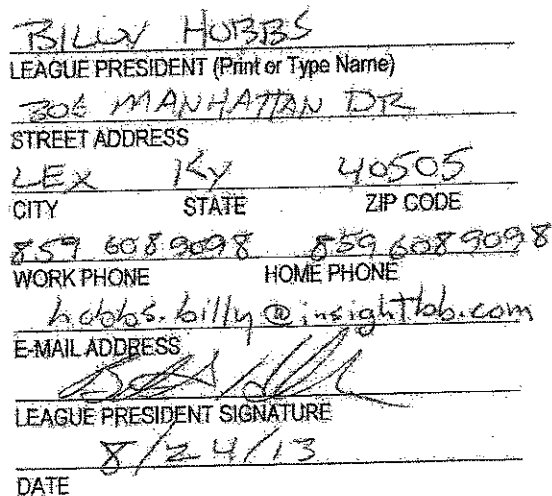 BILLY HOBBS
LEAGUE PRESIDENT (Print or Type Name)
306 MANHATTAN DR
STREET ADDRESS
LEX KY 40505
CITY STATE ZIP CODE
859 608 9098 859 608 9098
WORK PHONE HOME PHONE
hobbs.billy@insightbb.com
E-MAIL ADDRESS
LEAGUE PRESIDENT SIGNATURE
8/24/13
DATE